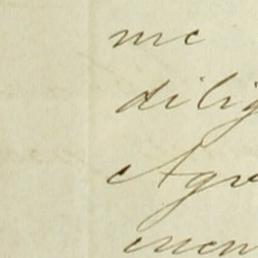 me
dilig
Agre